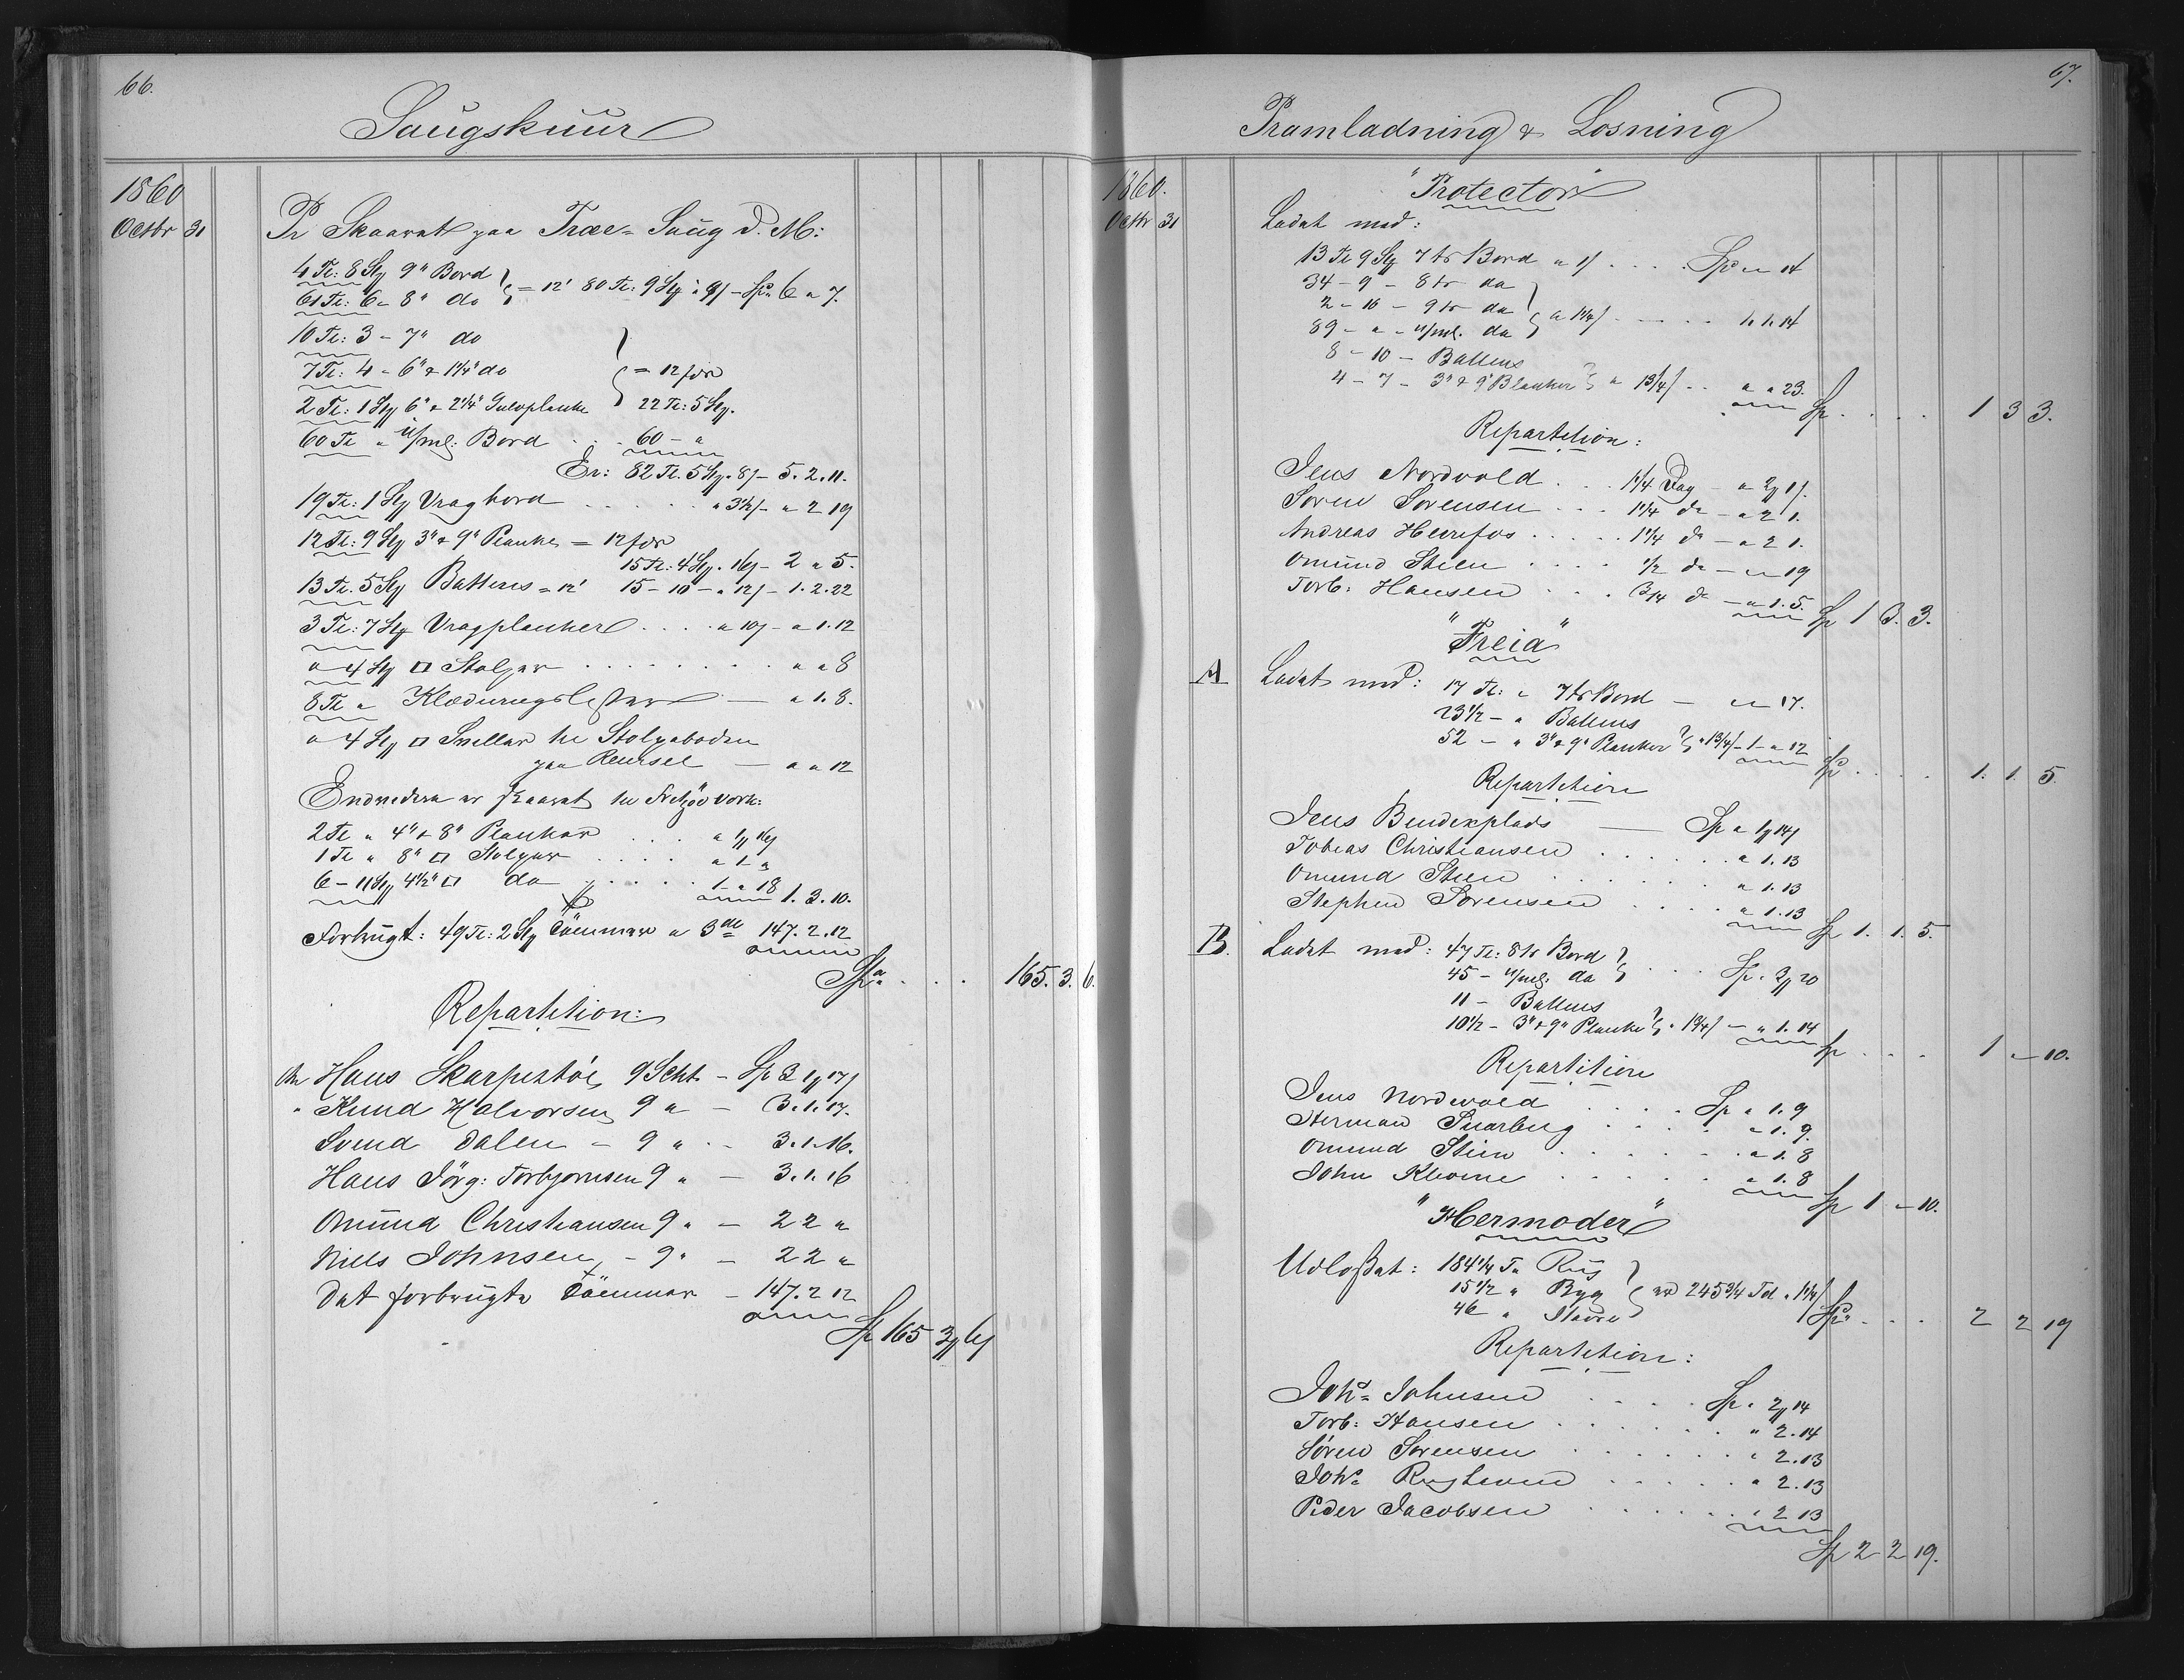 66.
Saugskuur
1860
Octbr 31 Pr Skaaret paa Træe-Saug d. M:
4 Tl: 8 Stg 9" Bord
61 Tl: 6 - 8" do } = 12' 80 Tl: 9 Stg a 9/ - Spd 6 " 7.
10 Tl: 3 - 7" do
7 Tl: 4 - 6" & 1 1/4" do } = 12 fod
2 Tl: 1 Stg 6" & 2 1/4" Gulvplanke 22 Tl: 5 Stg.
60 Tl " u/ml: Bord . . . 60 - "
Er: 82 Tl. 5 Stg a 8/ - 5. 2. 11.
19 Tl: 1 Stg Vragbord . . . . " 3 1/2/ - " 2 19
12 Tl: 9 Stg 3" & 9" Planke = 12 fod
15 Tl: 4 Stg " 16/ - 2 " 5.
13 Tl. 5 Stg Battens = 12' 15 - 10 - " 12/ - 1. 2. 22
3 Tl: 7 Stg Vragplanker . . . " 10/ - " 1. 12
" 4 Stg □ Stolper . . . . . . . " " 8
8 Tl " Klædningslester — " 1. 8.
" 4 Stg □ Sviller til Stolpeboden
paa Reursel — " " 12
Endvidere er skaaret til Fritzöe Værk:
2 Tl " 4" & 8" Planker . . . " 1/ 16/
1 Tl " 8" □ Stolper . . . . " 1 "
6 - 11 Stg 4 1/2" □ do . . . . 1 " 18 1. 3. 10.
Forbrugt: 49 Tl: 2 Stg Tömmer a 3 de 147. 2. 12
Spd . . . 165. 3. 6.
Repartition:
An Hans Skarpestöe, 9 Scht - Sp 3 1/ 17/
" Knud Halvorsen 9 " - 3. 1. 17.
Svend Dalen - 9 " - 3. 1. 16.
Hans Jörg: Torbjornsen 9 " - 3. 1. 16
Omund Christiansen 9 " - 2 2 "
Niels Johnsen - 9 " - 2 2 "
Det forbrugte Tömmer - 147. 2 12
Sp 165 3/ 6/
67.
Pramladning & Losning
1860.
"Protector"
Octbr 31 Ladet med:
13 Tl 9 Stg 7 tr Bord a 1/ . . . Spd " " 14
34 - 9 - 8 tr do
2 - 10 - 9 tr do
89 - " - u/ml. do } a 1 1/4/ . . . . 1. 1. 14
8 - 10 - Battens
4 - 7 - 3" & 9" Planker } a 1 3/4/ . . " " 23.
Sp . . . . 1 3 3.
Repartition:
Jens Nordvold . . 1 1/4 Dag - " 2/ 1/.
Sören Sorensen . . . 1 1/4 do - " 2 1.
Andreas Heirefos . . . . 1 1/4 do - " 2 1.
Omund Steen . . . . 1/2 do - " " 19
Torb: Hansen . . . 3/4 do - " 1. 5.
Sp 1 3. 3.
"Freia"
A Ladet med: 17 Tl: " 7 tr Bord - " " 17.
23 1/2 - " Battens
52 - " 3" & 9" Planker } " 1 3/4/ - 1 - " 12
Spd . . . . 1. 1. 5.
Repartition
Jens Bendexplads — Sp " 1/ 14/
Tobias Christiansen . . . . . . " 1. 13
Omund Steen . . . . . . " 1. 13
Stephen Sorensen . . . . " 1. 13
Sp 1. 1. 5.
B. Ladet med: 47 Tl: 8 tr Bord
45 - u/ml. do } . . . Sp " 3/ 20
11 - Battens
10 1/2 - 3" & 9" Planke } " 1 3/4/ - " 1. 14
Sp . . . 1 " 10.
Repartition
Jens Nordvold . . . . Sp " 1. 9
Herman Snarberg . . . . " 1. 9.
Omund Steen . . . . . . " 1. 8
John Klovene . . . . . " 1. 8
Sp 1 " 10.
"Hermoder"
Udlosset: 184 1/4 Td Rug
15 1/2 " Byg } er 245 3/4 Td " 1 1/4/
46 "
Spd . . . 2 2 19
Repartition:
Johs Johnsen . . . . Sp " 2/ 14
Torb: Hansen . . . . . . " 2. 14
Sören Sorensen . . . . . " 2. 13
Johs . . . . . " 2. 13
Peder Jacobsen . . . . . " 2 13
Sp 2 2 19.